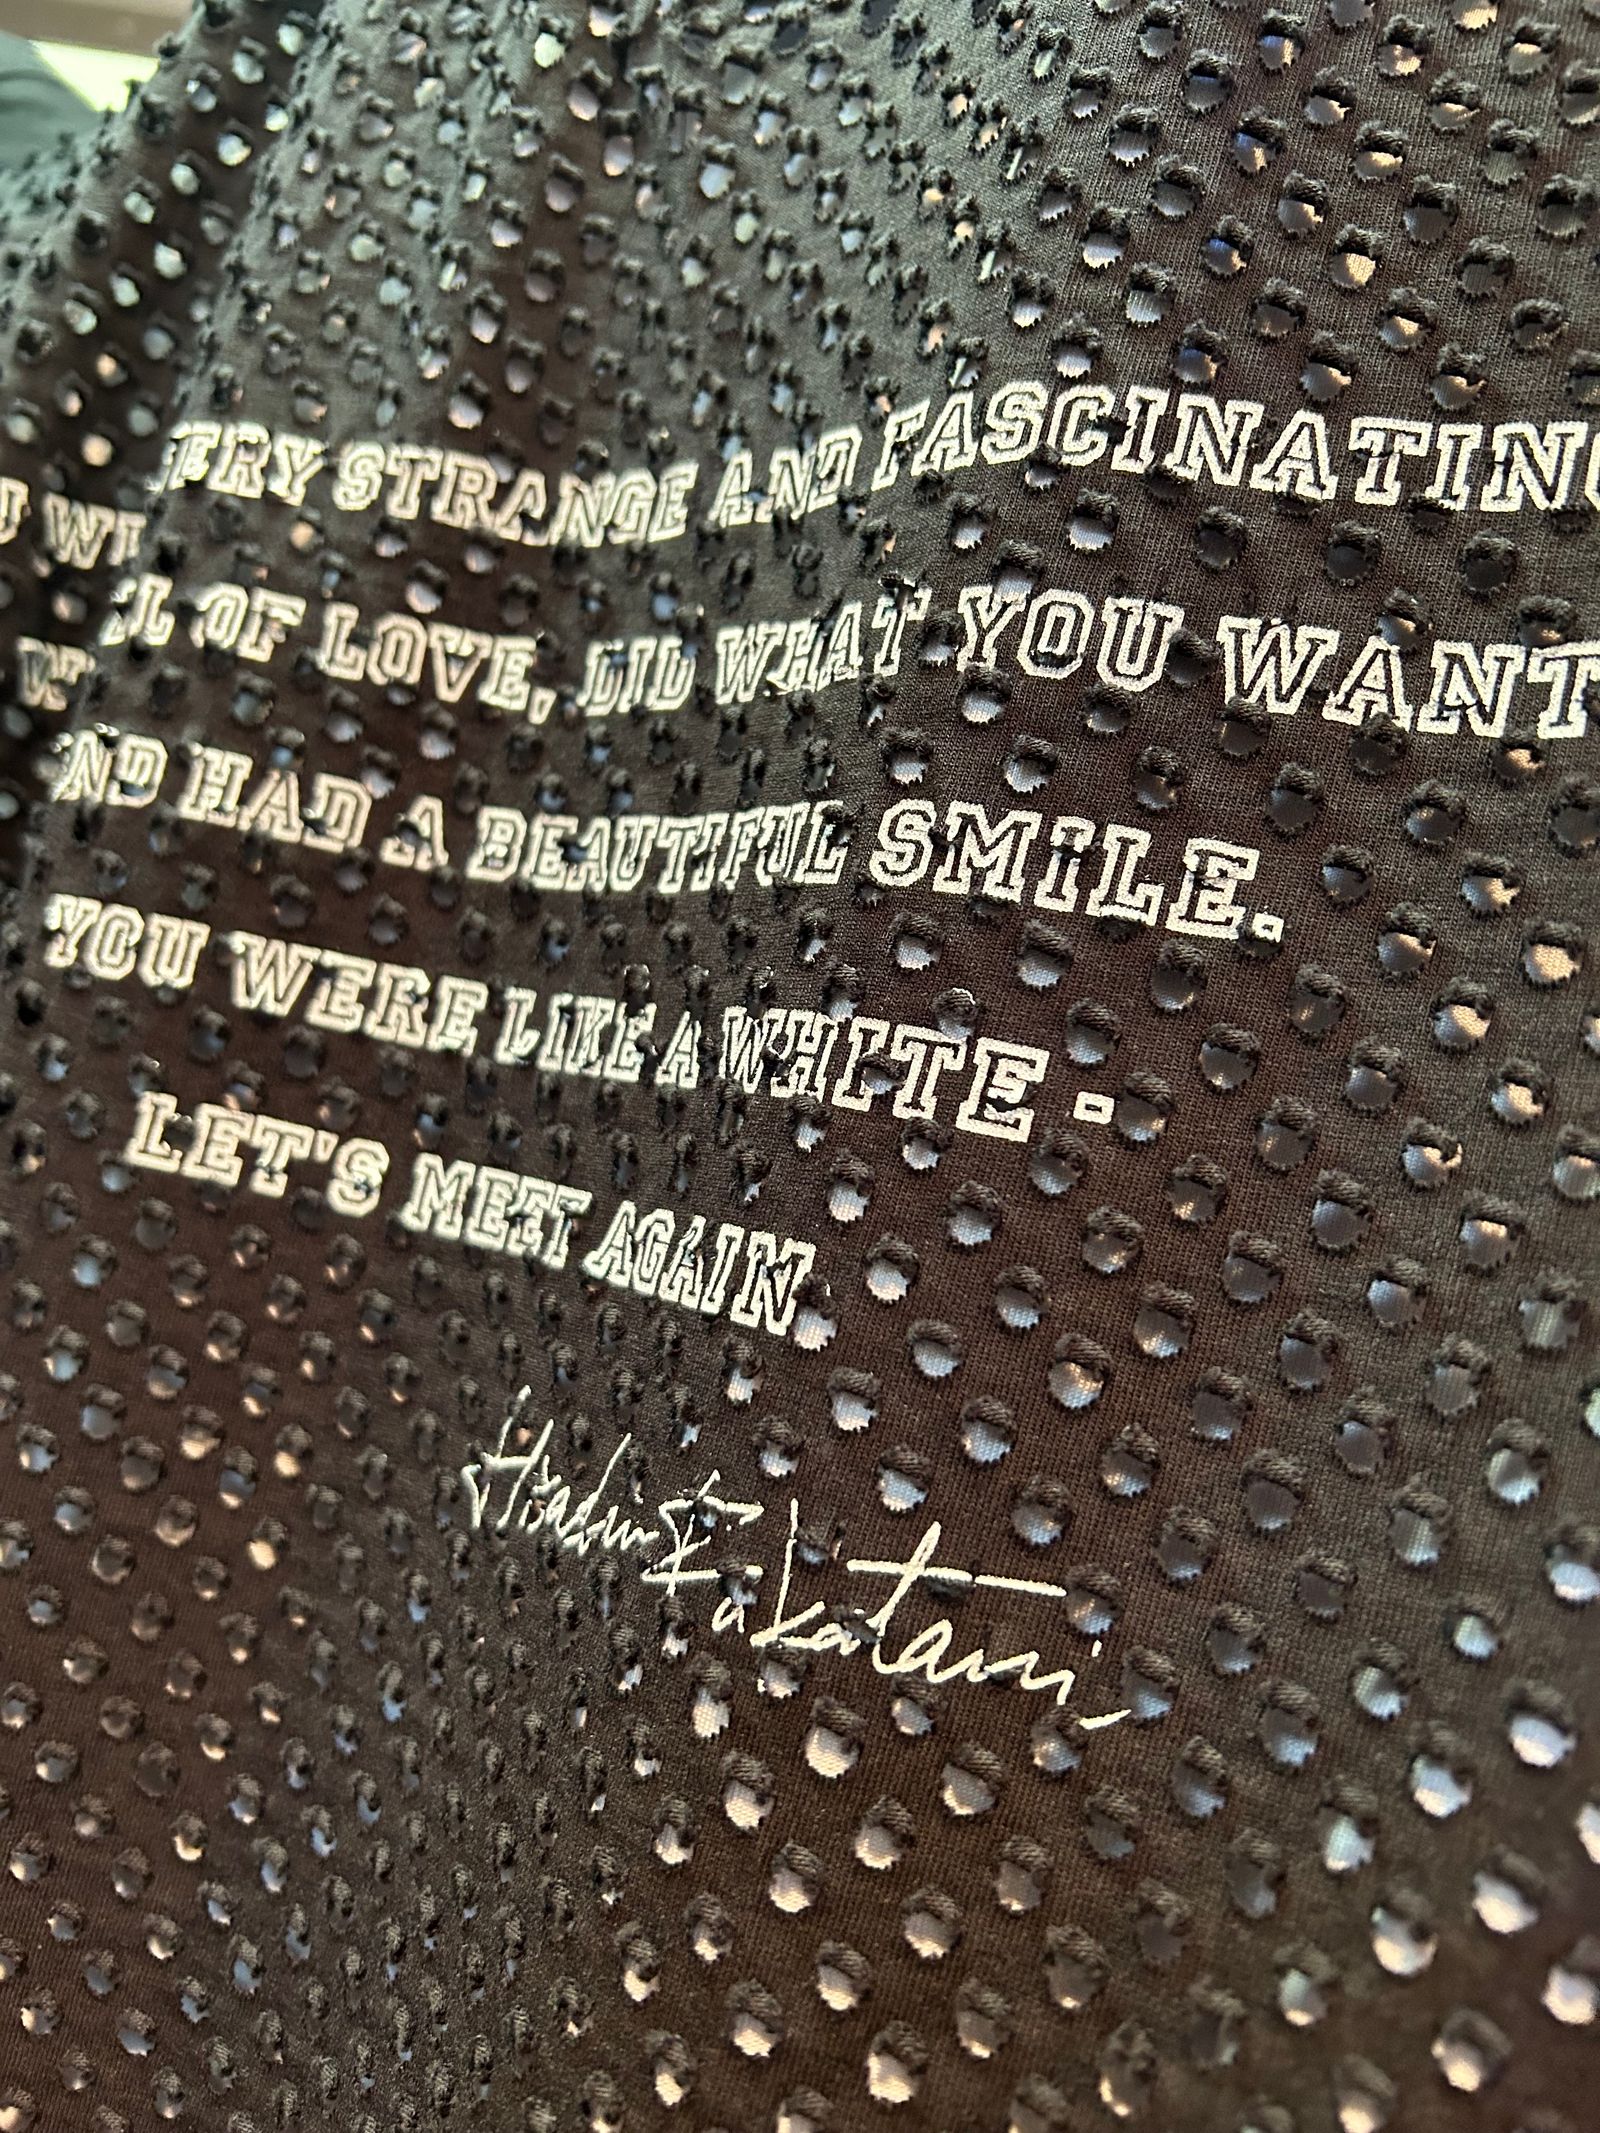 VERY STRANGE AND FASCINATING
OF LOVE, DID WHAT YOU WANT
AND HAD A BEAUTIFUL SMILE.
YOU WERE LIKE A WHITE -
LET'S MEET AGAIN